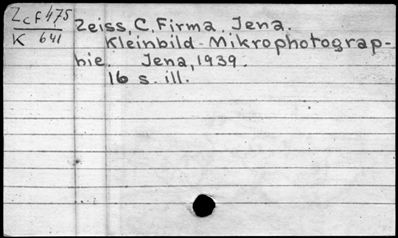 ZcF475
K 641
Zeiss, C. Firma. Jena.
Kleinbild-Mikrophotograp-
hie. Jena, 1939.
16 s. ill.